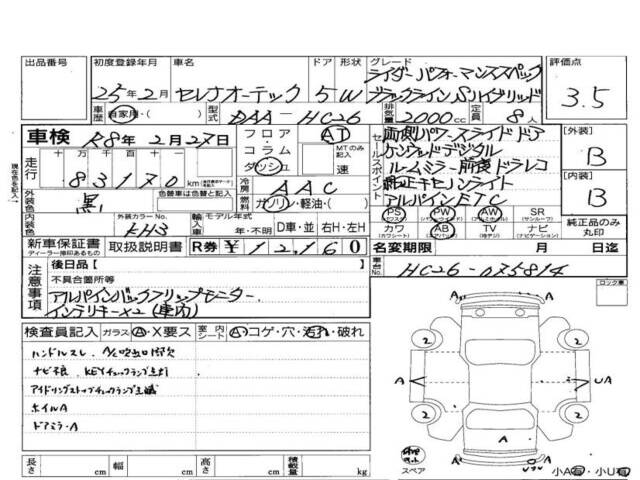 出品番号
初度登録年月 車名 ドア 形状 グレード 評価点
25年2月 セレナオーテック 5W ライダーパフォーマンススペック
ブラックラインSハイブリッド
3.5
車歴 自家用・( ) 型式 DAA-HC26 排気量 2000cc 定員 8人
車検 R8年2月27日
フロア・コラム・ダッシュ AT MTのみ記入 速
走行 十万 万 千 百 十 83170 km
外装色 黒 色替車は色替と記入
冷房 AAC
燃料 ガソリン・軽油・( )
内装色 外装カラーNo. KH3 輸入車 モデル年式 年・不明 D車・並 右H・左H
セールスポイント
両側パワースライドドア
ケンウッドデジタル
ルームミラー前後ドラレコ
純正キセノンライト
アルパインETC
【外装】 B
【内装】 B
PS PW AW SR
(パワステ) (パワーウインドウ) (アルミホイル) (サンルーフ)
カワ AB TV ナビ
(カワシート) (エアバッグ) (地デジ) (ナビゲーション)
純正品のみ丸印
新車保証書 取扱説明書 R券 ¥12,160
ディーラー捺印あるもの
名変期限 月 日迄
車台No. HC26-075814
現在色を記入
注意事項
後日品【 】
不具合箇所等
アルパインバックフリップモニター
インテリキー×2(車内)
ロック車
検査員記入 ガラス A・X要ス 室内シート A・コゲ・穴・汚れ・破れ
ハンドルスレ、A/C吹出口
ナビ不良、KEYチェックランプ点灯
アイドリングストップチェックランプ点滅
ホイルA
ドアミラーA
2 2
A A UA
2 2
A
A
スペア
小A有・小U有
長さ cm 幅 cm 高さ cm 積載量 kg